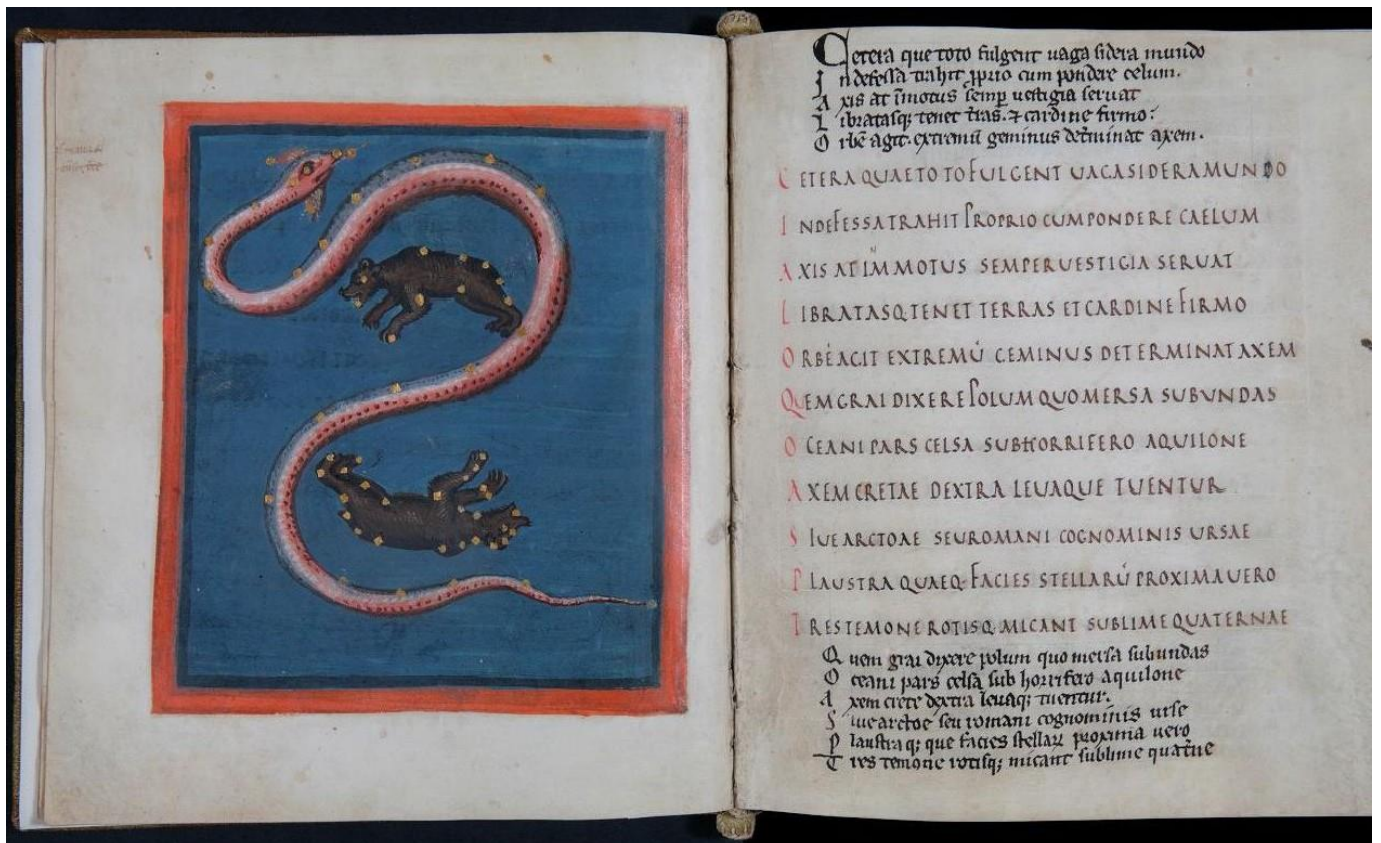 Cetera que toto fulgent uaga sidera mundo
Indefessa trahit p̱prio cum pondere celum.
Axis at īmotus semp̱ uestigia seruat
Libratasq; tenet t̄ras. ⁊ cardine firmo:
Orbē agit. extremū geminus det̄minat axem.
CETERA QUAE TOTO FULGENT UAGA SIDERA MUNDO
INDEFESSA TRAHIT PROPRIO CUM PONDERE CAELUM
AXIS AT IMMOTUS SEMPER UESTIGIA SERUAT
LIBRATASQ. TENET TERRAS ET CARDINE FIRMO
ORBĒ AGIT EXTREMŪ GEMINUS DETERMINAT AXEM
QUEM GRAI DIXERE POLUM QUO MERSA SUB UNDAS
OCEANI PARS CELSA SUB HORRIFERO AQUILONE
AXEM CRETAE DEXTRA LEUAQUE TUENTUR
SIUE ARCTOAE SEU ROMANI COGNOMINIS URSAE
PLAUSTRA QUAEQ. FACIES STELLARŪ PROXIMA UERO
TRES TEMONE ROTISQ. MICANT SUBLIME QUATERNAE
Quem grai dixere polum quo mersa sub undas
Oceani pars celsa sub horrifero aquilone
Axem crete dextra leuaq; tuentur.
Siue arctoe seu romani cognominis urse
Plaustra q; que facies stellaꝝ proxima uero
Tres temone rotisq; micant sublime quat̄ne